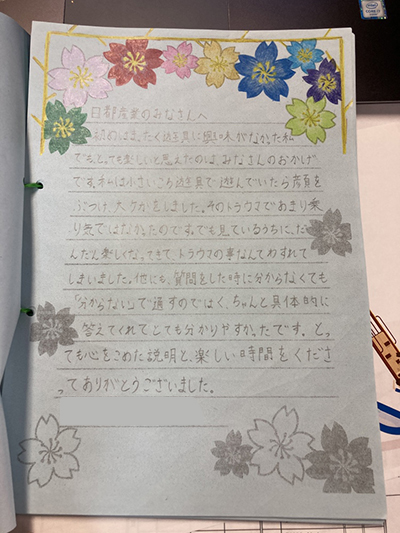 日都産業のみなさんへ
初めはまったく遊具に興味がなかった私
でも、とっても楽しいと思えたのは、みなさんのおかげ
です。私は小さいころ遊具で遊んでいたら顔を
ぶつけ、大ケガをしました。そのトラウマであまり乗
り気ではなかったのです。でも見ているうちに、だ
んだん楽しくなってきて、トラウマの事なんてわすれて
しまいました。他にも、質問をした時に分からなくても
「分からない」で通すのではなく、ちゃんと具体的に
答えてくれてとても分かりやすかったです。とっ
ても心をこめた説明と、楽しい時間をくださ
ってありがとうございました。